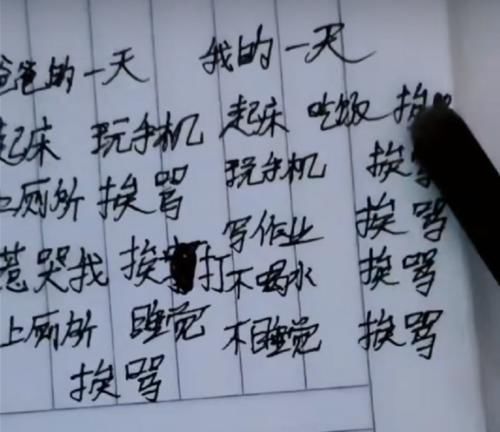 爸爸的一天
起床 玩手机
上厕所 挨骂
惹哭我 挨打
上厕所 睡觉
挨骂
我的一天
起床 吃饭 挨
玩手机 挨骂
写作业 挨骂
不喝水 挨骂
不睡觉 挨骂